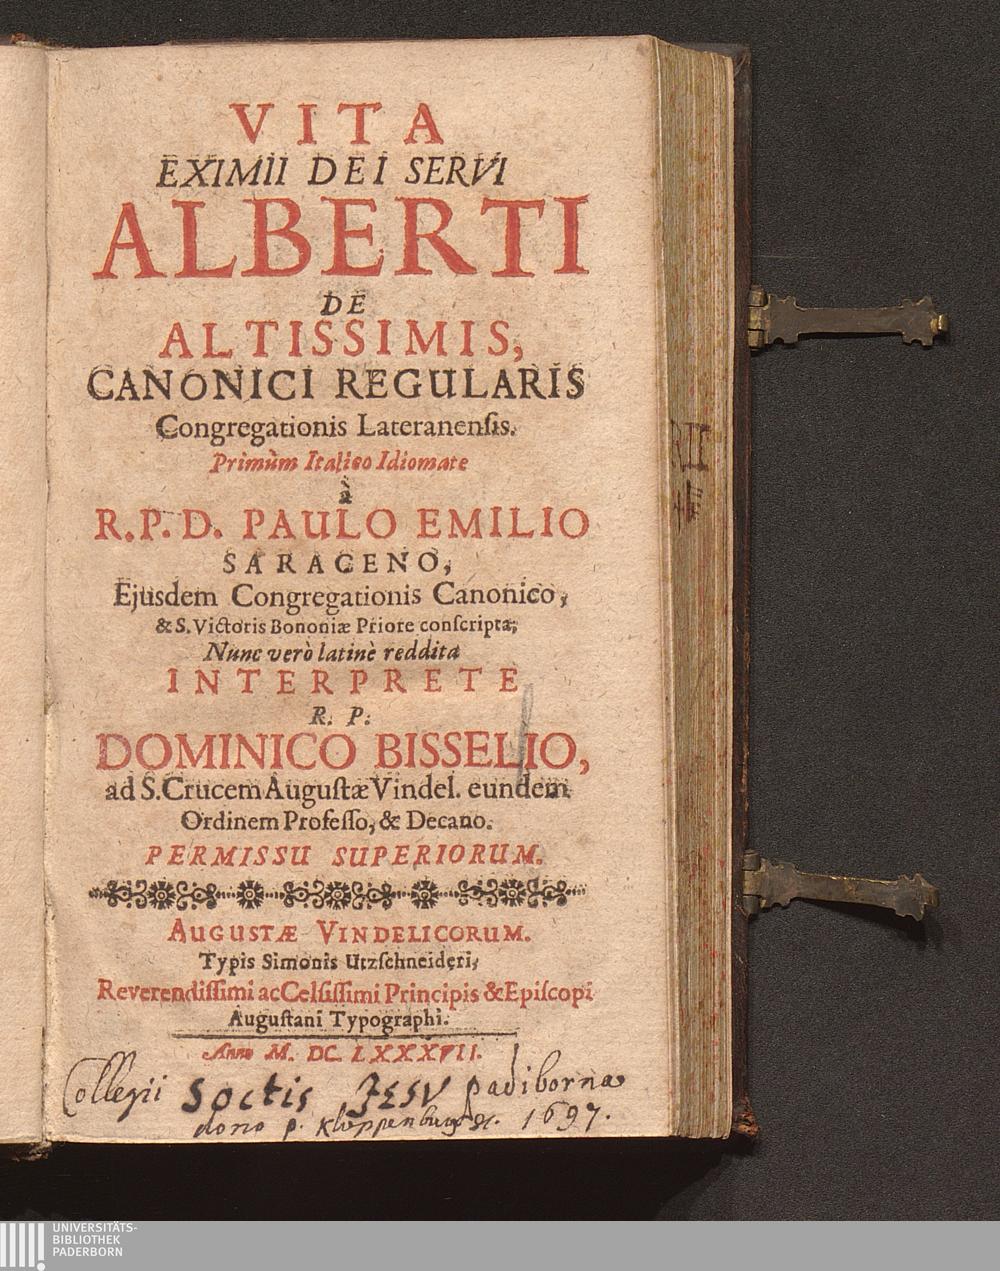 VITA
EXIMII DEI SERVI
ALBERTI
DE
ALTISSIMIS,
CANONICI REGULARIS
Congregationis Lateranenſis.
Primùm Italico Idiomate
à
R.P.D. PAULO EMILIO
SARACENO,
Ejusdem Congregationis Canonico,
& S. Victoris Bononiæ Priore conſcripta;
Nunc verò latinè reddita
INTERPRETE
R. P.
DOMINICO BISSELIO,
ad S. Crucem Auguſtæ Vindel. eundem
Ordinem Profeſſo, & Decano.
PERMISSU SUPERIORUM.
AUGUSTÆ VINDELICORUM.
Typis Simonis Utzſchneideri,
Reverendiſſimi ac Celſiſſimi Principis & Epiſcopi
Auguſtani Typographi.
Anno M. DC. LXXXVII.
Collegii Soctis JESU padibornæ
dono p. 1697.
UNIVERSITÄTS-
BIBLIOTHEK
PADERBORN